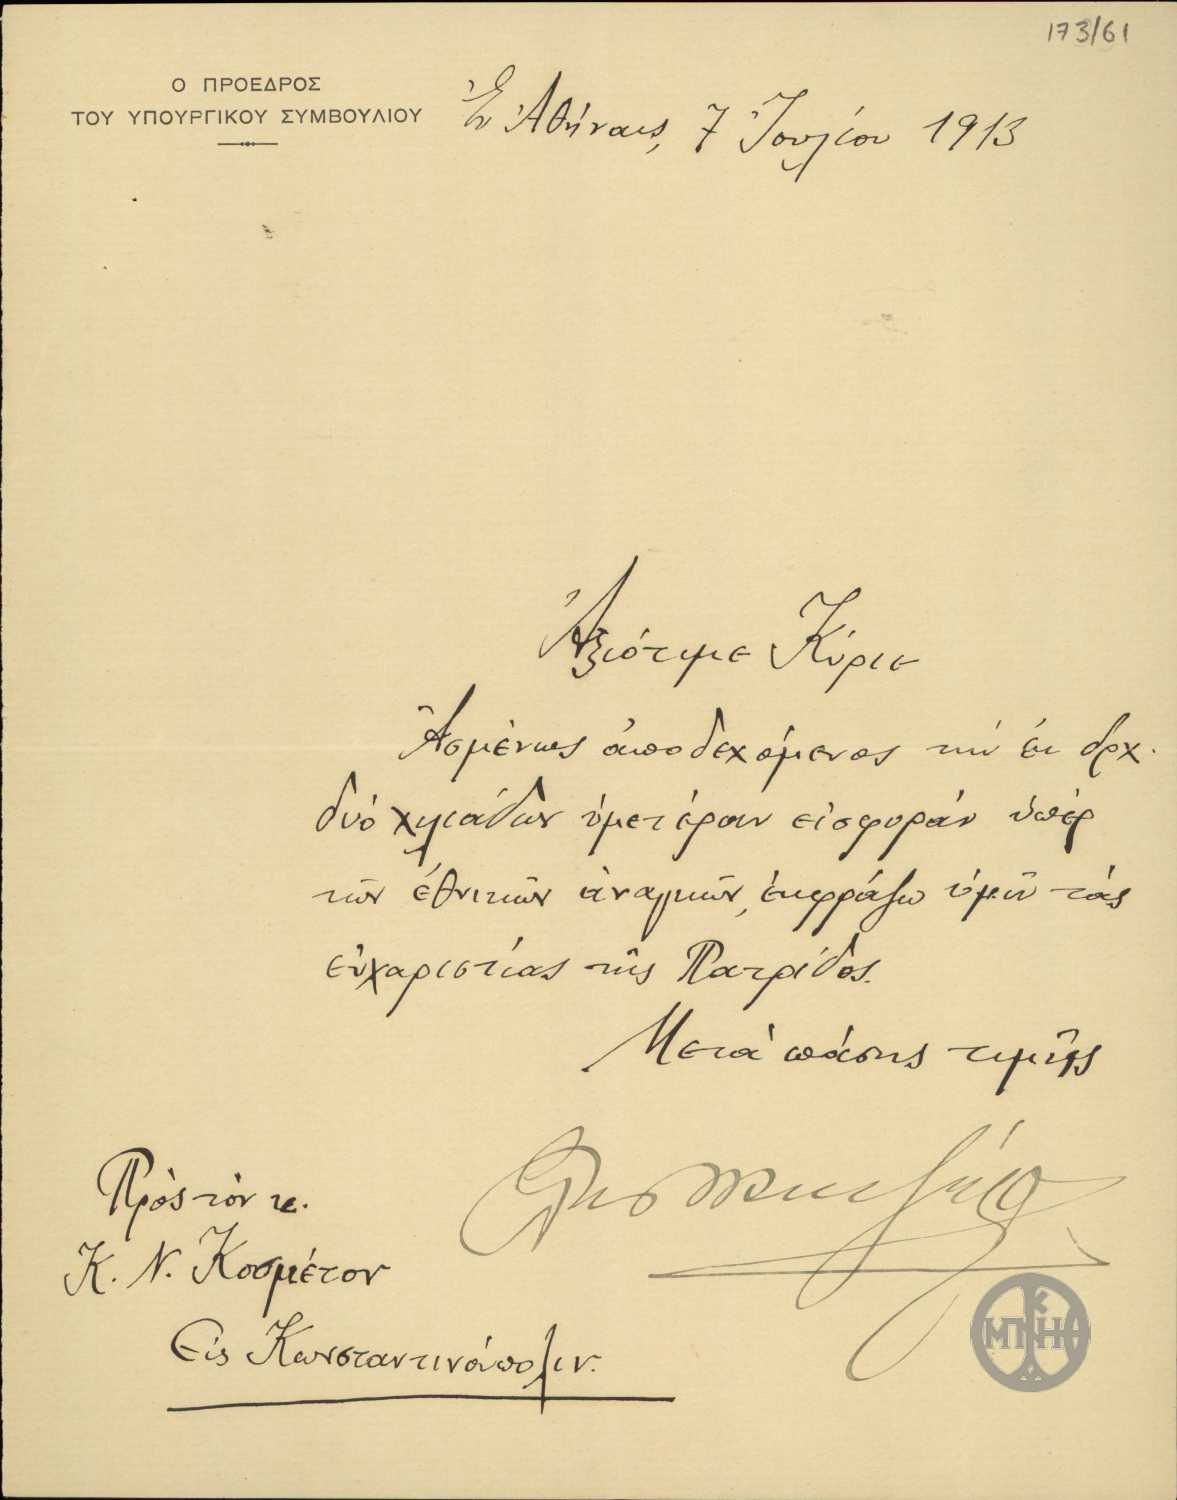 173/61
Ο ΠΡΟΕΔΡΟΣ
ΤΟΥ ΥΠΟΥΡΓΙΚΟΥ ΣΥΜΒΟΥΛΙΟΥ
Ἐν Ἀθήναις, 7 Ἰουλίου 1913
Ἀξιότιμε Κύριε
Ἀσμένως ἀποδεχόμενος τὴν ἐκ δρχ.
δύο χιλιάδων ὑμετέραν εἰσφορὰν ὑπὲρ
τῶν ἐθνικῶν ἀναγκῶν, ἐκφράζω ὑμῖν τὰς
εὐχαριστίας τῆς Πατρίδος.
Μετὰ πάσης τιμῆς
Πρὸς τὸν κ.
Κ. Ν. Κοσμέτον
Εἰς Κωνσταντινόυπολιν.
ΜΠΚΗ